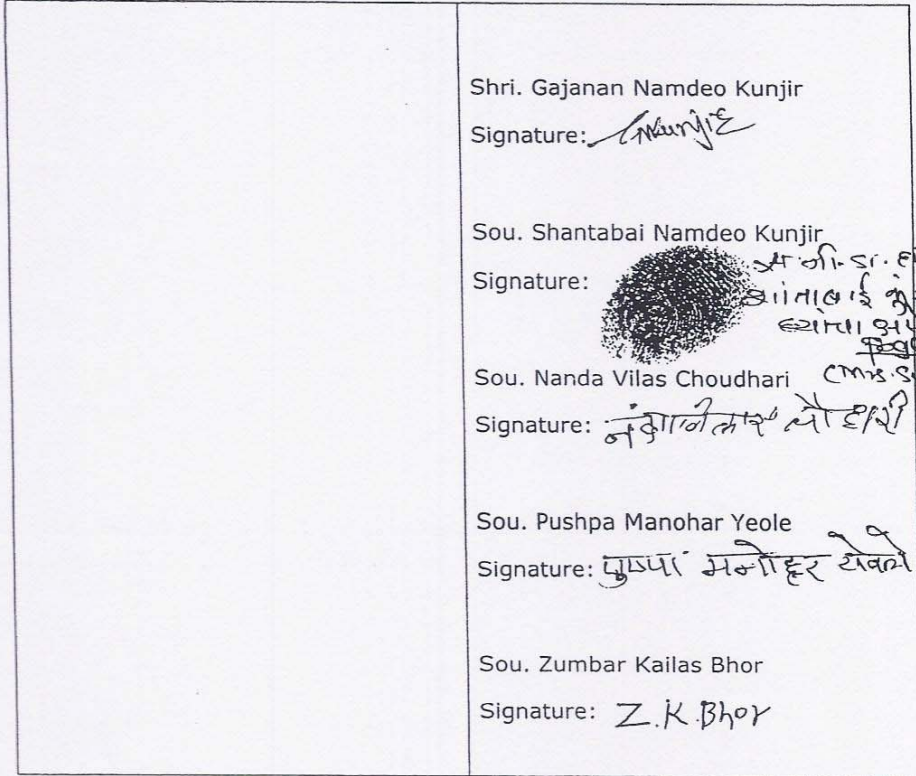 Shri. Gajanan Namdeo Kunjir
Signature: Gnkunjir
Sou. Shantabai Namdeo Kunjir
Signature:
शांताबाई
Sou. Nanda Vilas Choudhari
Signature: नंदा विलास चौधरी
Sou. Pushpa Manohar Yeole
Signature: पुष्पा मनोहर येवले
Sou. Zumbar Kailas Bhor
Signature: Z.K.Bhor